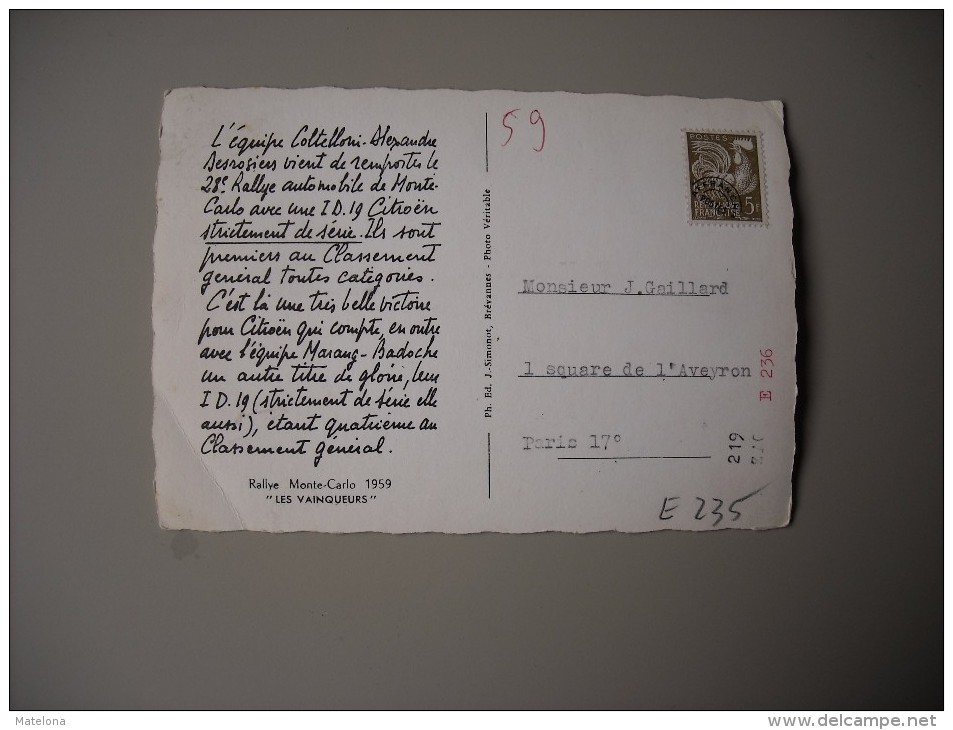 L'équipe Coltelloni-Alexandre
Desrosiers vient de remporter le
28e Rallye automobile de Monte-
Carlo avec une I D.19 Citroën
strictement de série. Ils sont
premiers au Classement
général toutes catégories.
C'est là une très belle victoire
pour Citroën qui compte, en outre
avec l'équipe Marang-Badoche
un autre titre de gloire, leur
I D.19 (strictement de série elle
aussi), étant quatrième au
Classement général.
Rallye Monte-Carlo 1959
"LES VAINQUEURS"
Ph. Ed. J.-Simonot, Brévannes - Photo Véritable
59
POSTES
5F
FRANÇAISE
Monsieur J.Gaillard
1 square de l'Aveyron
Paris 17°
E 236
219
E 235
Matelona
www.delcampe.net